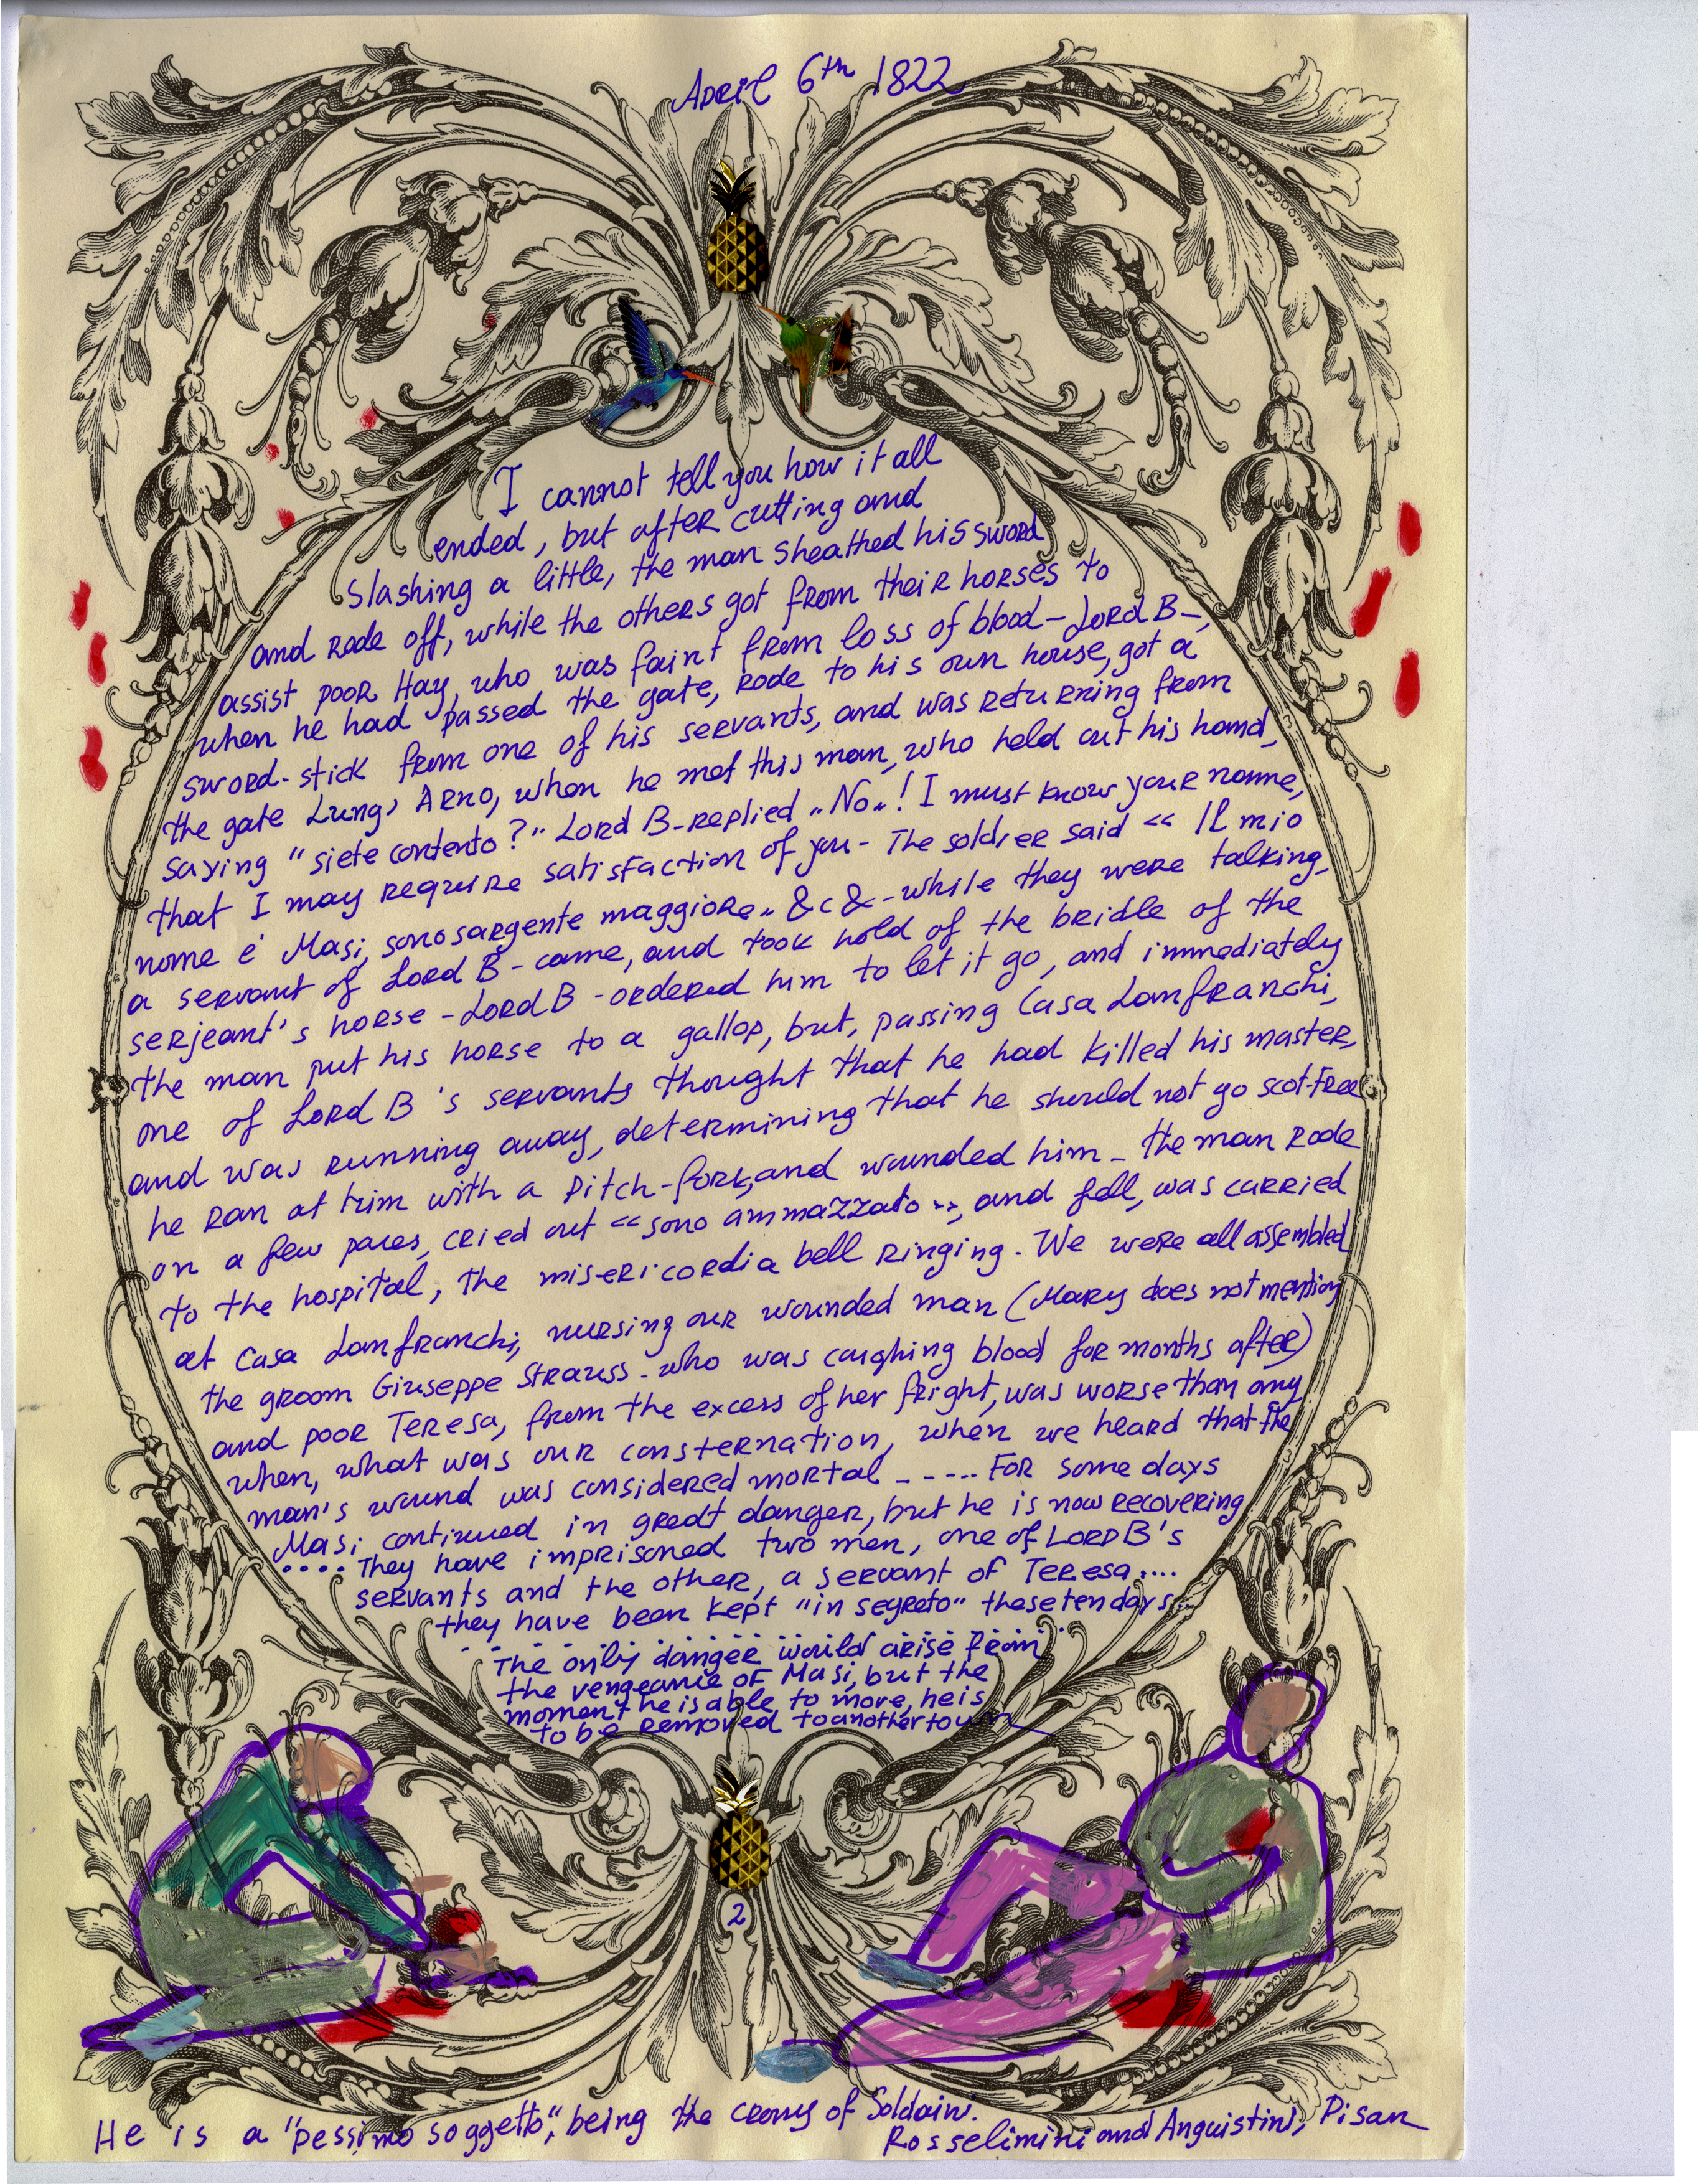 April 6th 1822
I cannot tell you how it all
ended, but after cutting and
slashing a little, the man sheathed his sword
and rode off, while the others got from their horses to
assist poor Hay, who was faint from loss of blood - Lord B-,
when he had passed the gate, rode to his own house, got a
sword-stick from one of his servants, and was returning from
the gate Lung' Arno, when he met this man, who held out his hand,
saying "siete contento?" Lord B-replied "No"! I must know your name,
that I may require satisfaction of you - The soldier said << Il mio
nome é Masi, sono sargente maggiore" &c& - while they were talking,
a servant of Lord B - came, and took hold of the bridle of the
serjeant's horse - Lord B - ordered him to let it go, and immediately
the man put his horse to a gallop, but, passing Casa Lanfranchi,
one of Lord B 's servants thought that he had killed his master,
and was running away, determining that he should not go scot-free
he ran at him with a pitch-fork, and wounded him - the man rode
on a few paces, cried out << sono ammazzato >>, and fell, was carried
to the hospital, the misericordia bell ringing. We were all assembled
at Casa Lanfranchi, nursing our wounded man (Mary does not mention
the groom Giuseppe Strauss - who was caughing blood for months after)
and poor Teresa, from the excess of her fright, was worse than any,
when, what was our consternation, when we heard that the
man's wound was considered mortal - - .... For some days
Masi continued in great danger, but he is now recovering
.... They have imprisoned two men, one of Lord B's
servants and the other, a servant of Teresa ....
they have been kept "in segreto" these ten days...
The only danger would arise from
the vengeance of Masi, but the
moment he is able to more, he is
to be removed to another town
2
He is a "pessimo soggetto", being the crony of Soldaini.
Rosselimini and Anguistini, Pisan